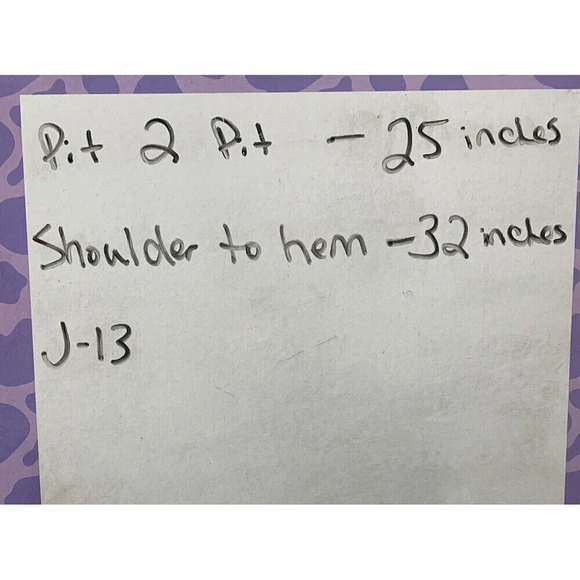 Pit 2 Pit - 25 inches
Shoulder to hem - 32 inches
J-13